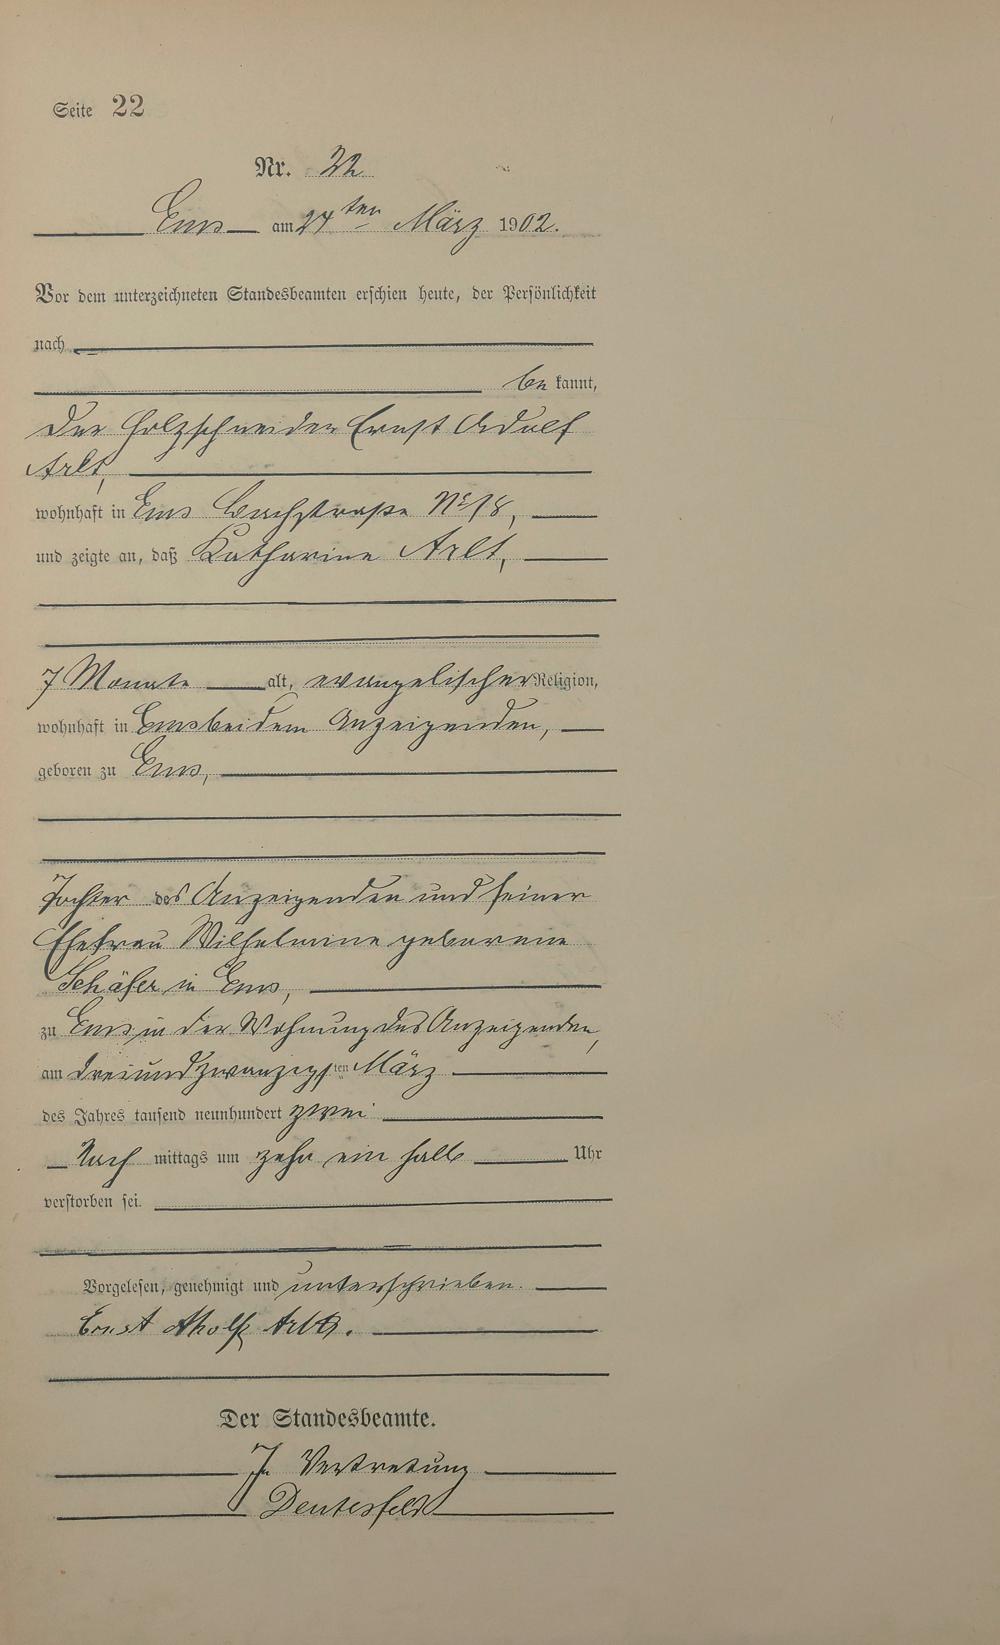 Seite 22
Nr. 22
Ems am 24ten März 1902.
Vor dem unterzeichneten Standesbeamten erschien heute, der Persönlichkeit
nach
be kannt,
der Holzschneider Ernst Adolf
Arlt,
wohnhaft in Ems Bachstraße No 18,
und zeigte an, daß Katharine Arlt,
7 Monate alt, evangelischer Religion,
wohnhaft in Ems bei dem Anzeigenden,
geboren zu Ems,
Tochter des Anzeigenden und seiner
Ehefrau Wilhelmine geborene
Schäfer in Ems,
zu Ems in der Wohnung des Anzeigenden,
am dreiundzwanzigsten März
des Jahres tausend neunhundert zwei
Nach mittags um zehn ein halb Uhr
verstorben sei.
Vorgelesen, genehmigt und unterschrieben.
Ernst Adolf Arlt.
Der Standesbeamte.
In Vertretung